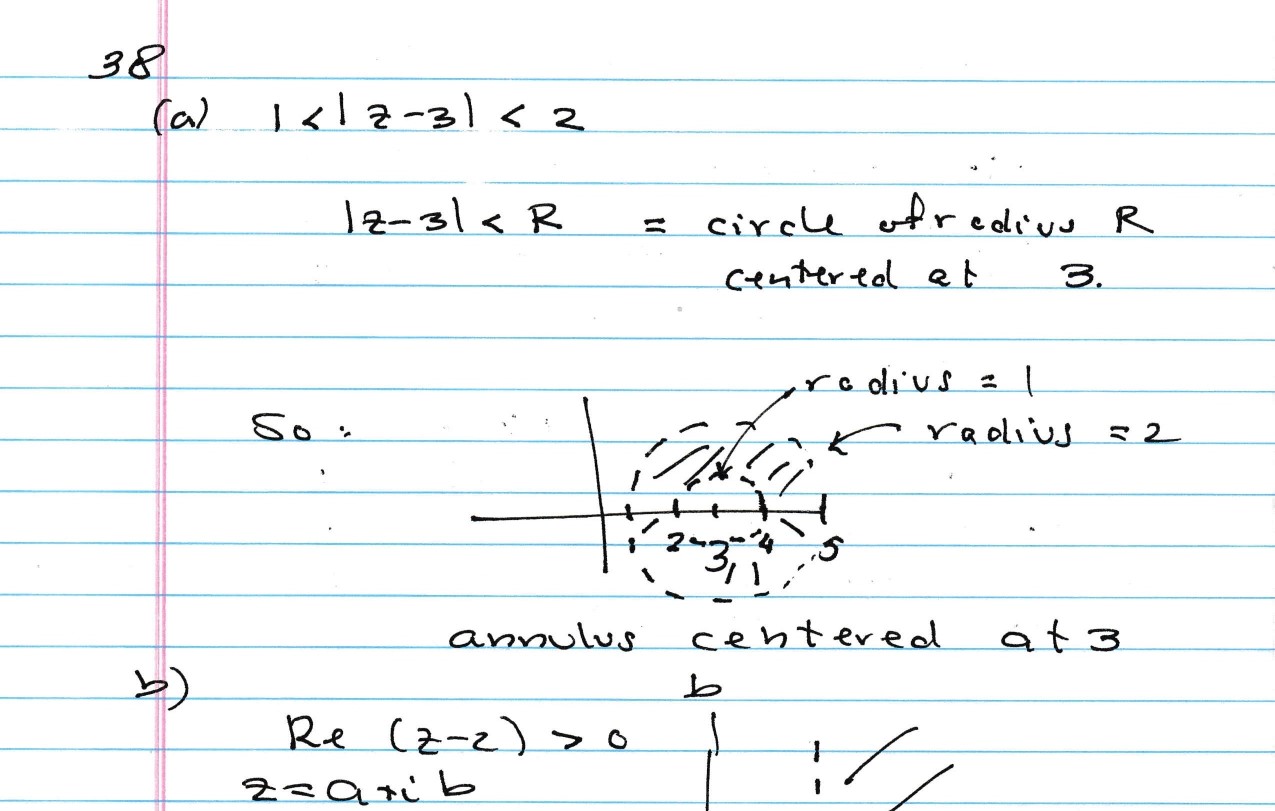 38
(a) 1 < | z - 3 | < 2
| z - 3 | < R = circle of radius R
centered at 3.
radius = 1
So : radius = 2
1 2 3 4 5
annulus centered at 3
b) b
Re (z-2) > 0
z = a + i b